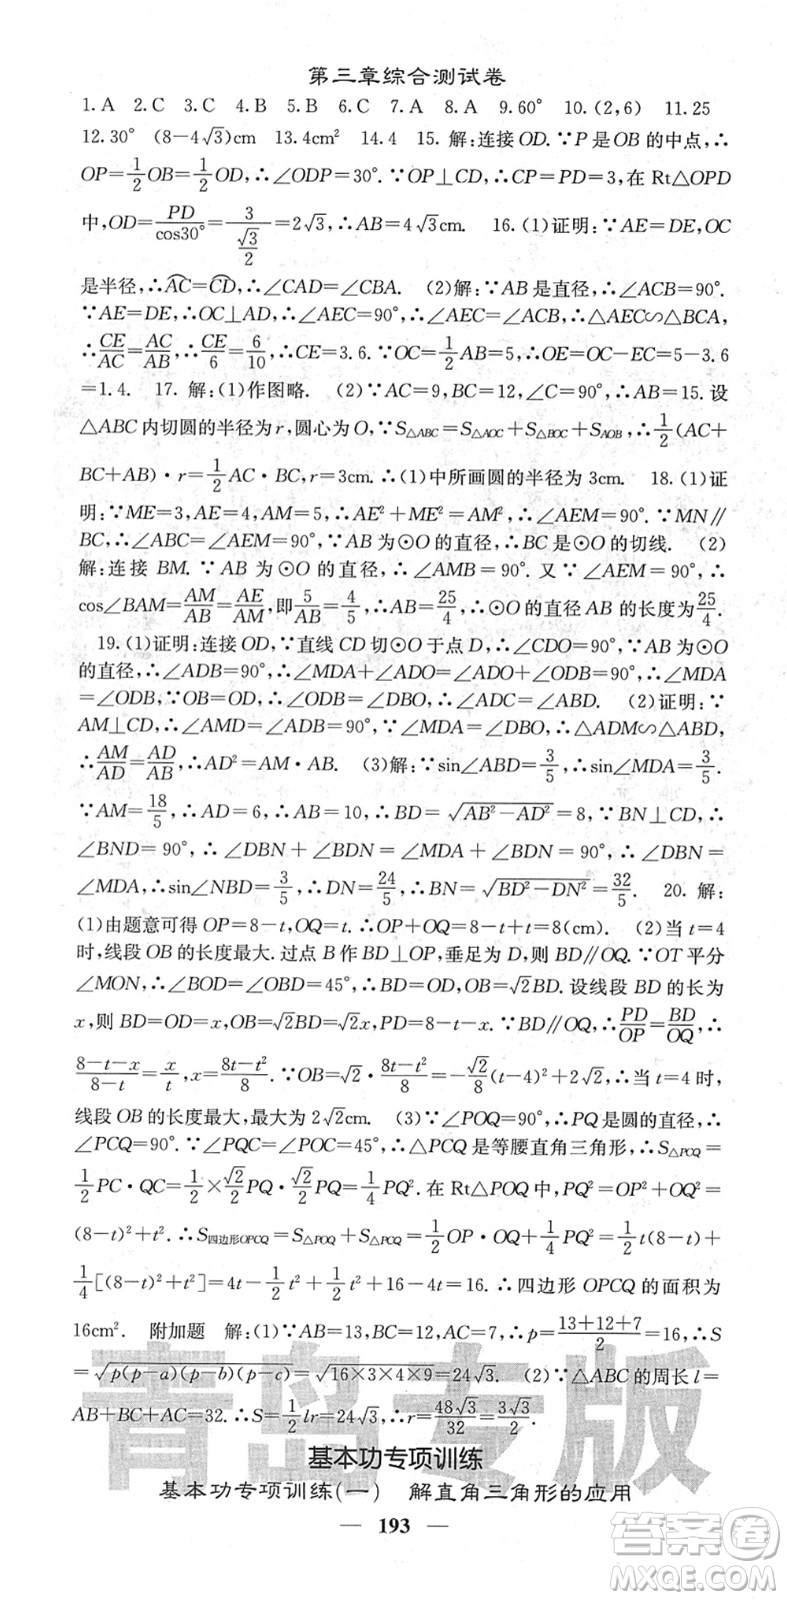 第三章综合测试卷
1.A 2.C 3.C 4.B 5.B 6.C 7.A 8.A 9.60° 10.(2,6) 11.25
12.30° (8-4√3)cm 13.4cm² 14.4 15.解:连接OD.∵P是OB的中点,∴
OP=1/2OB=1/2OD,∴∠ODP=30°.∵OP⊥CD,∴CP=PD=3,在Rt△OPD
中,OD=PD/cos30°=3/(√3/2)=2√3,∴AB=4√3cm. 16.(1)证明:∵AE=DE,OC
是半径,∴AC⌒=CD⌒,∴∠CAD=∠CBA. (2)解:∵AB是直径,∴∠ACB=90°.
∵AE=DE,∴OC⊥AD,∴∠AEC=90°,∴∠AEC=∠ACB,∴△AEC∽△BCA,
∴CE/AC=AC/AB,∴CE/6=6/10,∴CE=3.6.∵OC=1/2AB=5,∴OE=OC-EC=5-3.6
=1.4. 17.解:(1)作图略. (2)∵AC=9,BC=12,∠C=90°,∴AB=15.设
△ABC内切圆的半径为r,圆心为O,∵S△ABC=S△AOC+S△BOC+SAOB,∴1/2(AC+
BC+AB)·r=1/2AC·BC,r=3cm.∴(1)中所画圆的半径为3cm. 18.(1)证
明:∵ME=3,AE=4,AM=5,∴AE²+ME²=AM²,∴∠AEM=90°.∵MN∥
BC,∴∠ABC=∠AEM=90°.∵AB为⊙O的直径,∴BC是⊙O的切线. (2)
解:连接BM.∵AB为⊙O的直径,∴∠AMB=90°.又∵∠AEM=90°,∴
cos∠BAM=AM/AB=AE/AM,即5/AB=4/5,∴AB=25/4,∴⊙O的直径AB的长度为25/4.
19.(1)证明:连接OD,∵直线CD切⊙O于点D,∴∠CDO=90°,∵AB为⊙O
的直径,∴∠ADB=90°,∴∠MDA+∠ADO=∠ADO+∠ODB,∴∠MDA=
∠ODB,∵OB=OD,∴∠ODB=∠DBO,∴∠ADC=∠ABD. (2)证明:∵
AM⊥CD,∴∠AMD=∠ADB=90°,∵∠MDA=∠DBO,∴△ADM∽△ABD,
∴AM/AD=AD/AB,∴AD²=AM·AB. (3)解:∵sin∠ABD=3/5,∴sin∠MDA=3/5.
∵AM=18/5,∴AD=6,∴AB=10,∴BD=√(AB²-AD²)=8,∵BN⊥CD,∴
∠BND=90°,∴∠DBN+∠BDN=∠ADM+∠BDN=90°,∴∠DBN=
∠MDA,∴sin∠NBD=3/5,∴DN=24/5,∴BN=√(BD²-DN²)=32/5. 20.解:
(1)由题意可得OP=8-t,OQ=t.∴OP+OQ=8-t+t=8(cm). (2)当t=4
时,线段OB的长度最大.过点B作BD⊥OP,垂足为D,则BD∥OQ.∵OT平分
∠MON,∴∠BOD=∠OBD=45°,∴BD=OD,OB=√2BD.设线段BD的长为
x,则BD=OD=x,OB=√2BD=√2x,PD=8-t-x.∵BD∥OQ,∴PD/OP=BD/OQ,∴
(8-t-x)/(8-t)=x/t,∴x=(8t-t²)/8.∵OB=√2·(8t-t²)/8=-√2/8(t-4)²+2√2.∴当t=4时,
线段OB的长度最大,最大为2√2cm. (3)∵∠POQ=90°,∴PQ是圆的直径,∴
∠PCQ=90°.∵∠PQC=∠POC=45°,∴△PCQ是等腰直角三角形,∴S△PCQ=
1/2PC·QC=1/2×√2/2PQ·√2/2PQ=1/4PQ².在Rt△POQ中,PQ²=OP²+OQ²=
(8-t)²+t².∴S四边形OPCQ=S△POQ+S△PCQ=1/2OP·OQ+1/4PQ²=1/2t(8-t)+
1/4[(8-t)²+t²]=4t-1/2t²+1/2t²+16-4t=16.∴四边形OPCQ的面积为
16cm². 附加题 解:(1)∵AB=13,BC=12,AC=7,∴p=(13+12+7)/2=16,∴S
=√(p(p-a)(p-b)(p-c))=√(16×3×4×9)=24√3. (2)∵△ABC的周长l=
AB+BC+AC=32.∴S=1/2lr=24√3,∴r=48√3/32=3√3/2.
青岛专版
基本功专项训练
基本功专项训练(一) 解直角三角形的应用
— 193 —
答案圈
MXQE.COM